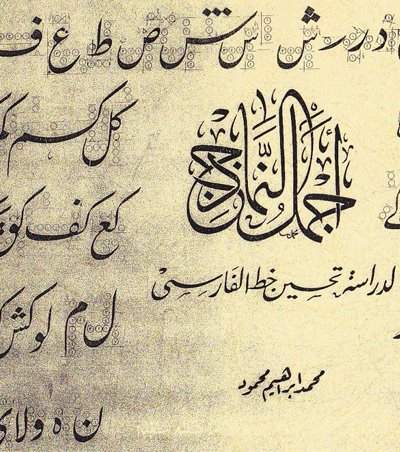 د ر ر ش س ش ص ط ع ف
أجمل النماذج
لدراسة تحسين خط الفارسي
محمد ابراهيم محمود
كل كسم
كع كف
ل م لو كش
ن ه و لا ی